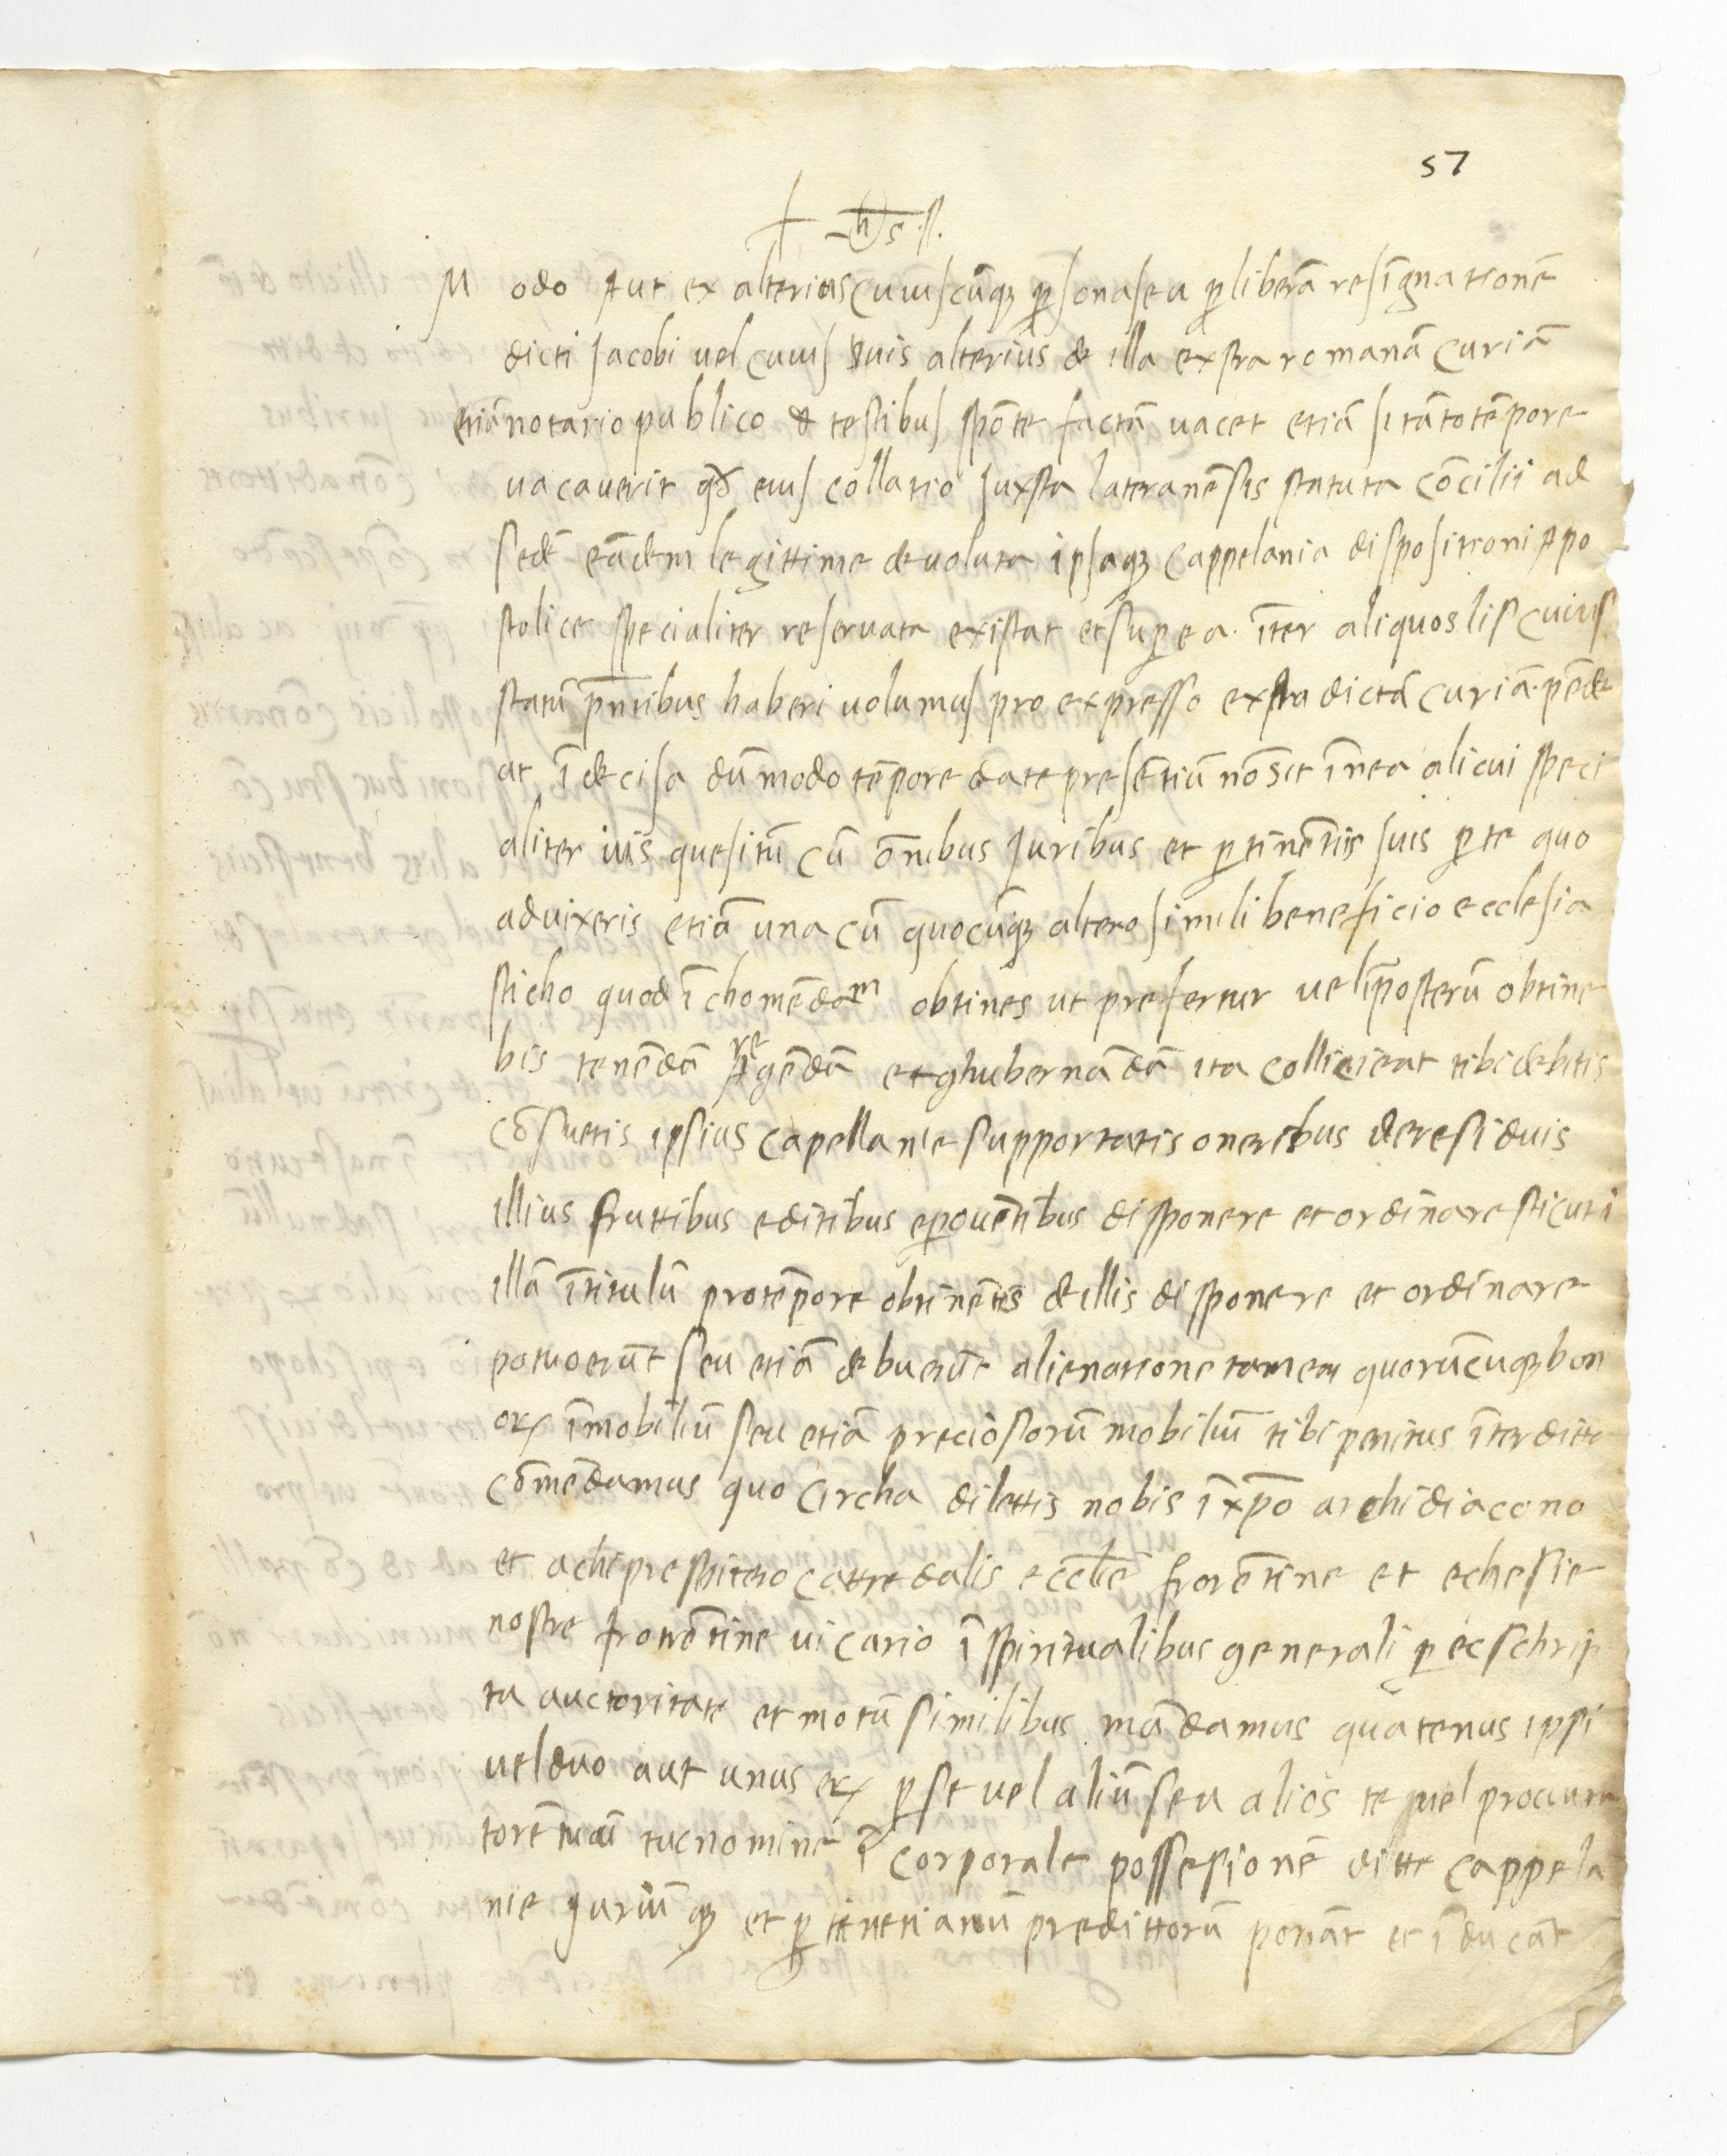 57
+ yhs .ſ.
M odo aut ex alterius cuiuſcūqȝ ꝑſona ſeu ꝑ liberā reſignationē
dicti Jacobi uel cuiuſ uis alterius de illa extra romanā curiā
etiā notario publico & teſtibuſ ſpōte factā uacet etiā ſi tāto tēpore
vacauerit qd̄ eiuſ collatio Juxta lateranēſis ſtatuta cōcilii ad
ſedē eādem legittime deuoluta ipſaqȝ Cappelania diſpoſitioni Apo
ſtolice ſpecialiter reſeruata exiſtat et ſuꝑ ea īter aliquos liſ cuiuſ
ſtatū pn̄tibus haberi uolumuſ pro expreſſo extra dictā curiā pēde
at īdeciſa dū modo tēpore date preſētiū nō sit ī nea alicui ſpeci
aliter ius queſitū cū ōnibus Juribus et ꝑtinētiis ſuis ꝑ te quo
aduixeris etiā una cū quocūqȝ altero ſimili beneficio eccleſia
ſticho quod ī chomēdam obtines ut prefertur uel īpoſterū obtine
bis tenēdā regēdā et ghubernādā ita collicieat tibi debitis
cōſuetis ipſius capellanie ſupportatis oneribus de reſiduis
illius fruttibus editibus eꝓouētibus diſponere et ordinare ſicuti
illā ī titulū pro tēpore obtinētis de illis diſponere et ordinare
potuoerūt ſeu etiā debuerūt alienatione tamen quorūcuqȝ bon
oꝝ īmobiliū ſeu etiā precioſorū mobiliū tibi penitus īterditto
cōmēdamus quo circha dilettis nobis ī xp̄o archidiacono
et achipreſbitero catredalis eccl̄e frorētine et echeſie
noſtre frorētine uicario ī ſpiritualibus generali ꝑ ecſchrip
ta auctoritate et motu ſimilibus mādamus quatenus ipſi
uel duo aut unus eoꝝ ꝑ ſe uel aliū ſeu alios te uel procura
torē tuū tuo nomine ī corporale poſſeſionē ditte cappela
nie Juriū qȝ et ꝑ tinetianū predittorū ponāt et īducāt